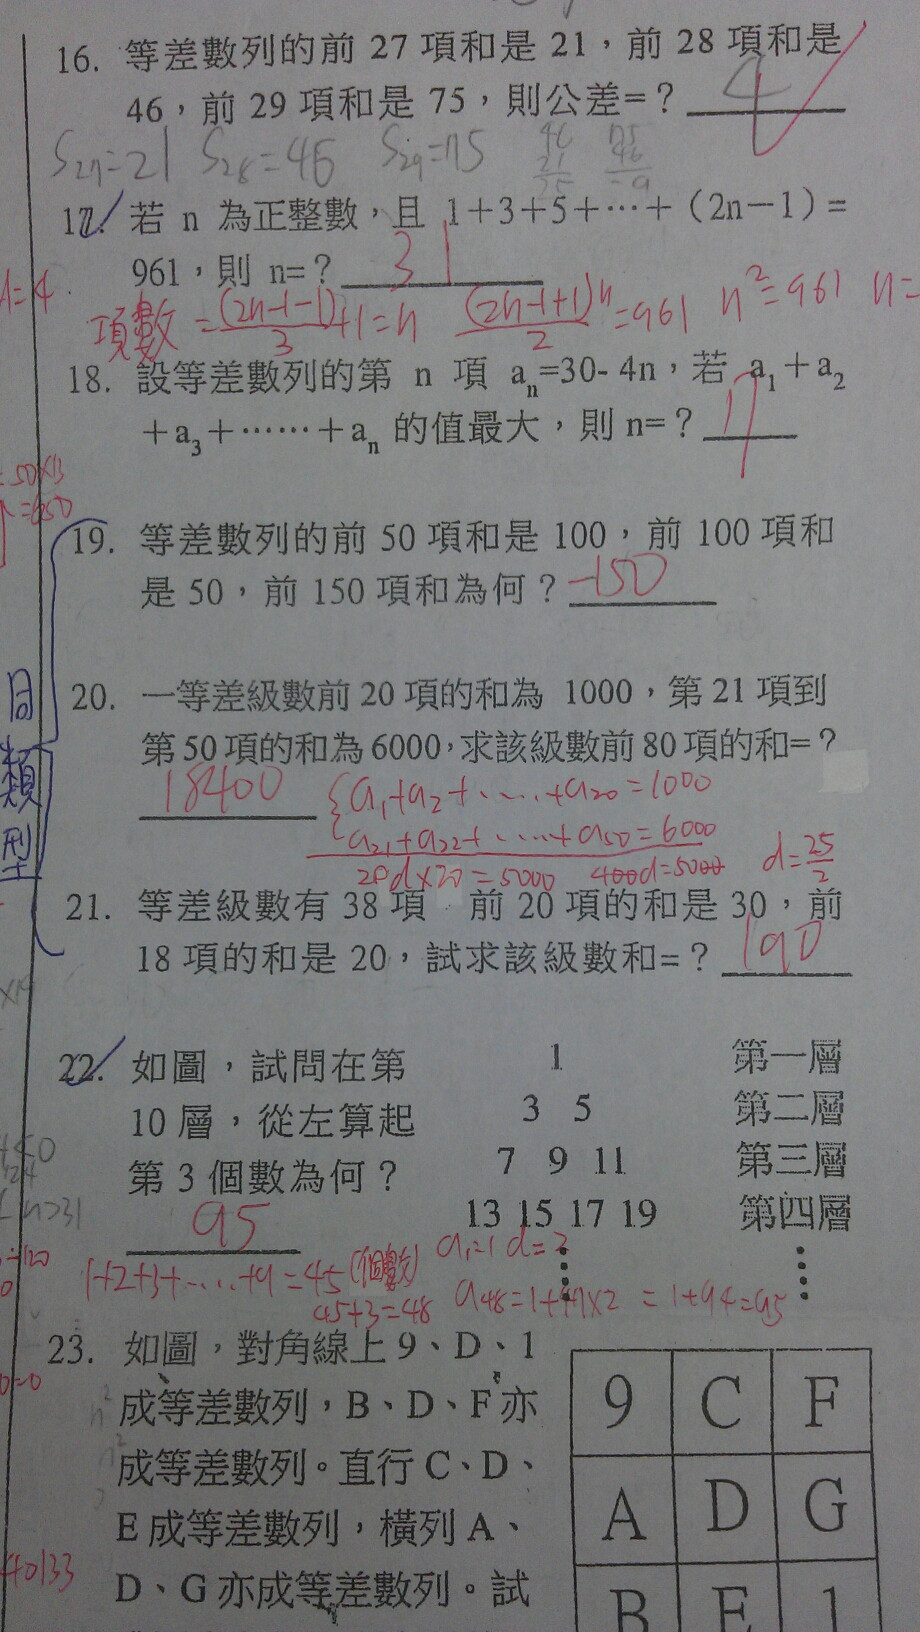 16. 等差數列的前 27 項和是 21，前 28 項和是
46，前 29 項和是 75，則公差=？ 4
S27=21 S28=46 S29=75 46 75
21 46
17. 若 n 為正整數，且 1＋3＋5＋⋯＋（2n－1）=
961，則 n=？ 31
d=4
項數 = (2n-1-1)/3 +1=n (2n-1+1)n/2 =961 n²=961 n=
18. 設等差數列的第 n 項 aₙ=30- 4n，若 a₁＋a₂
＋a₃＋⋯⋯＋aₙ 的值最大，則 n=？ 7
=50×13
=650
19. 等差數列的前 50 項和是 100，前 100 項和
是 50，前 150 項和為何？ -150
同類型
20. 一等差級數前 20 項的和為 1000，第 21 項到
第 50 項的和為 6000，求該級數前 80 項的和=？
18400 {a₁+a₂+⋯+a₂₀=1000
a₂₁+a₂₂+⋯+a₅₀=6000
20d×20=5000 400d=5000 d=25/2
21. 等差級數有 38 項 前 20 項的和是 30，前
18 項的和是 20，試求該級數和=？ 190
22. 如圖，試問在第 1 第一層
10 層，從左算起 3 5 第二層
第 3 個數為何？ 7 9 11 第三層
95 13 15 17 19 第四層
1+2+3+⋯+9=45(個數) a₁=1 d=2
45+3=48 a₄₈=1+47×2 =1+94=95
23. 如圖，對角線上 9、D、1
成等差數列，B、D、F 亦
成等差數列。直行 C、D、
E 成等差數列，橫列 A、
D、G 亦成等差數列。試
9 C F
A D G
B E 1